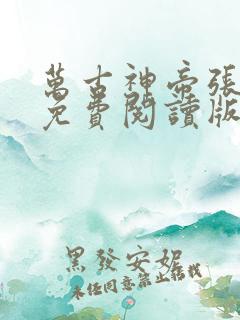 萬古神帝張
免費閱讀版
黑發安妮
未經同意禁止轉載